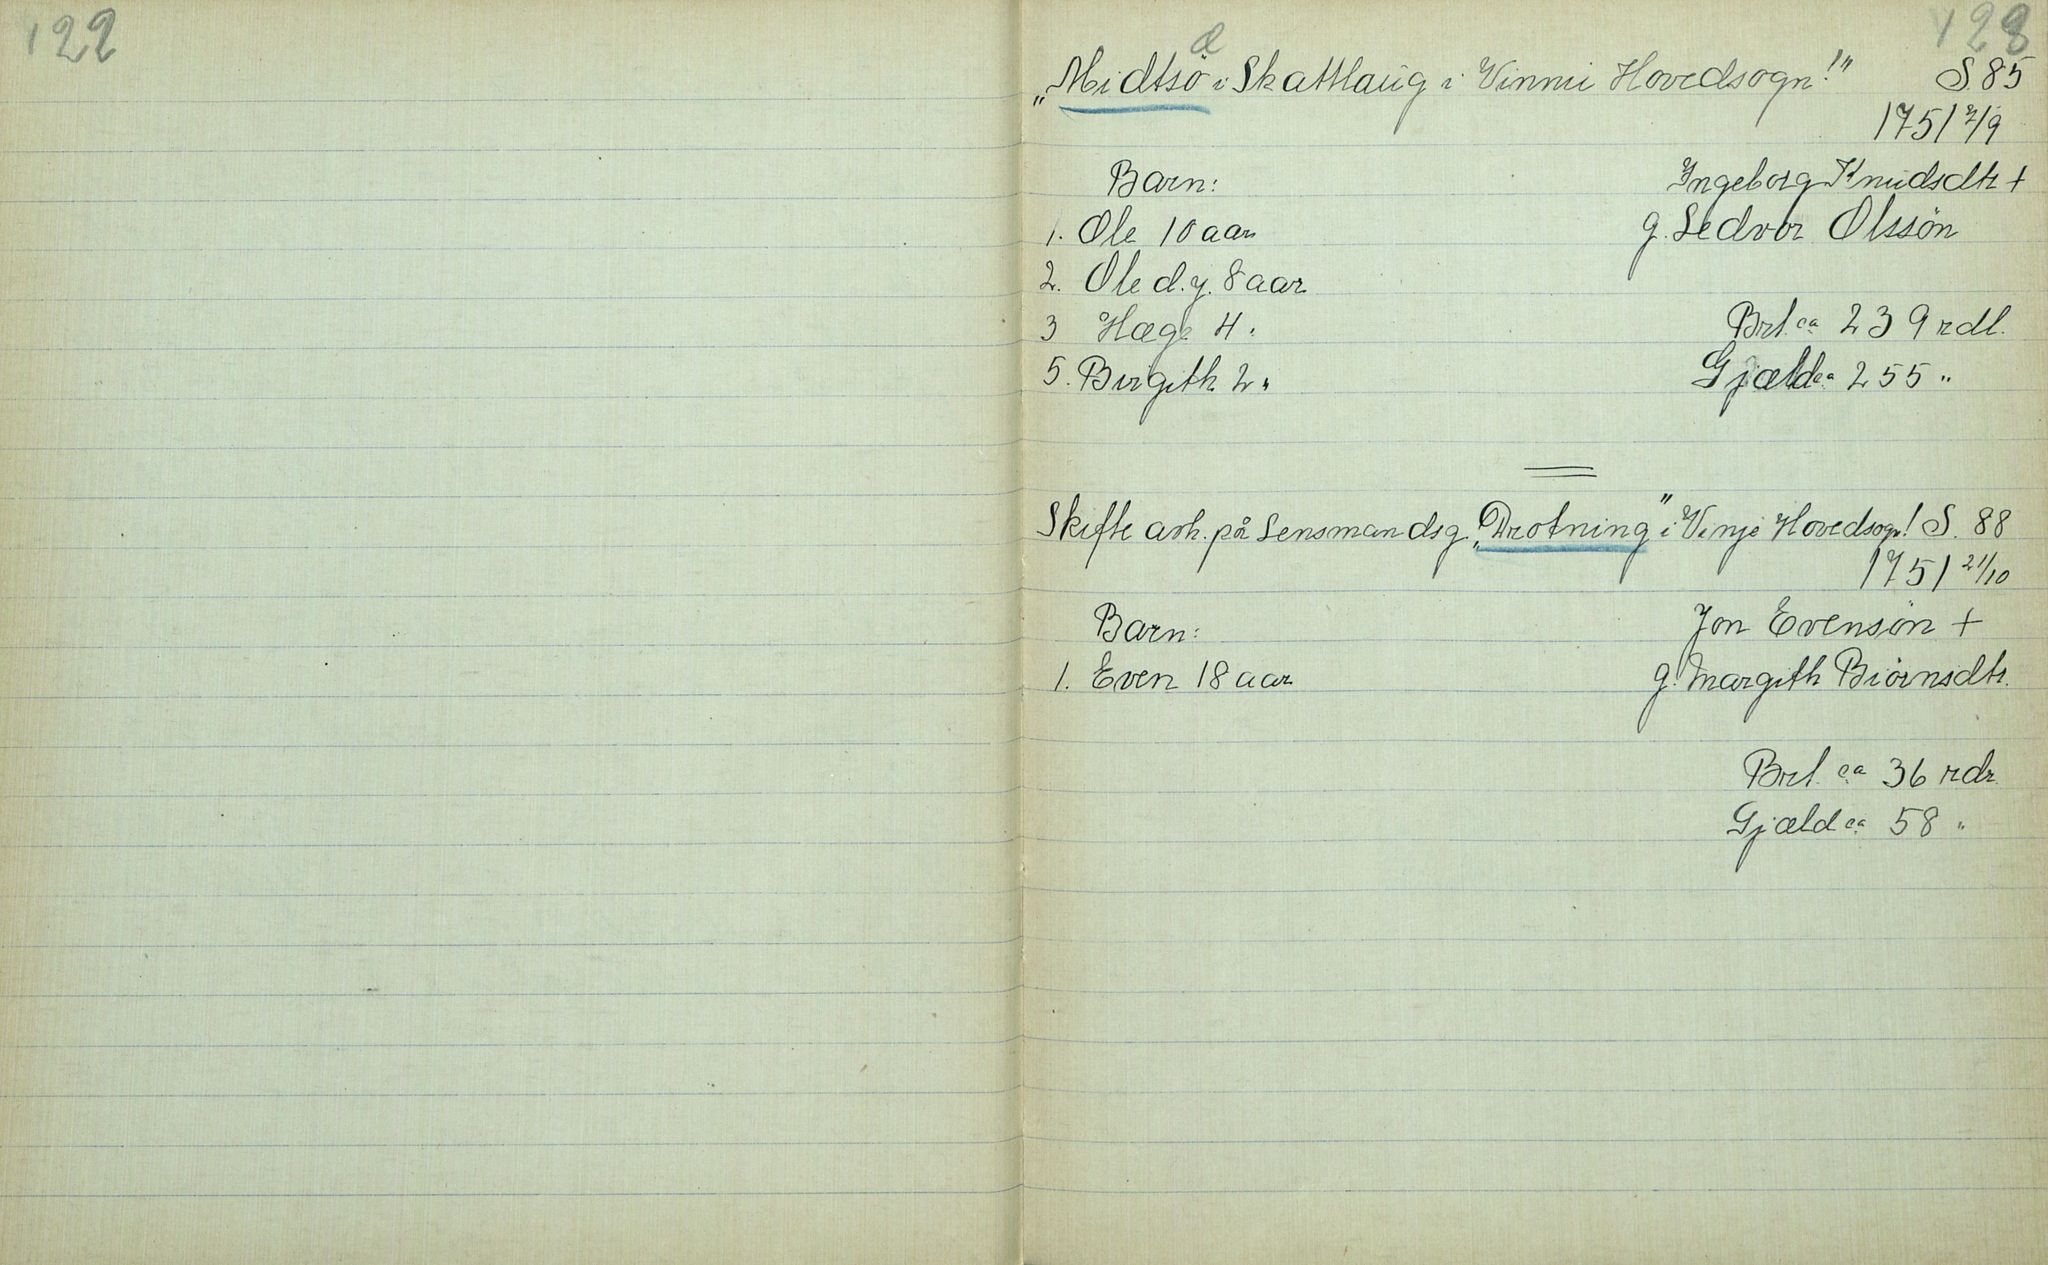 122
123
æ
„Midtsö i Skattlaug i Vinnie Hovedsogn!" S. 85
1751 2/9
Barn: Ingeborg Knudsdtr +
1. Ole 10 aar g. Sedvor Olssön
2. Ole d.y. 8 aar
3 Hæge 4 " Brt. ca 239 rdl.
5. Birgith 2 " Gjæld ca 255 "
Skifte avh. på Lensmandsg. „Drotning" i Vinje Hovedsogn! S. 88
1751 21/10
Barn: Jon Evensön +
1. Even 18 aar g. Margith Biörnsdtr.
Brt. ca 36 rdr.
Gjæld ca 58 "